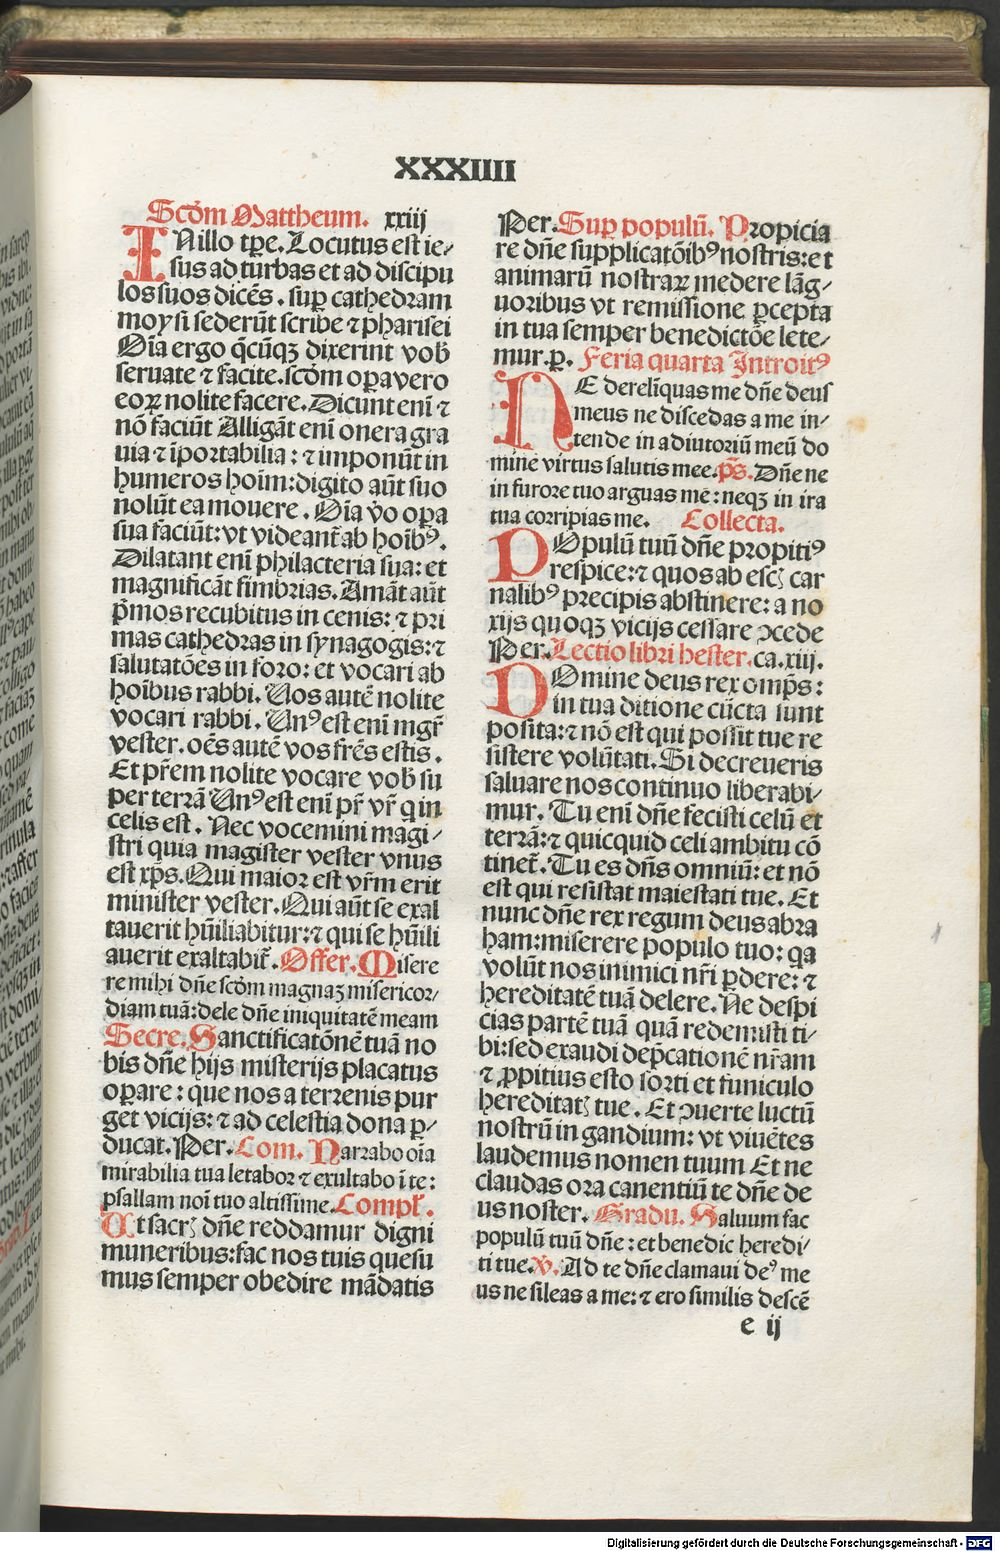 XXXIIII
Scd̄m Mattheum. xxiij
IN illo tꝑe. Locutus est ie⸗
sus ad turbas et ad discipu
los suos dicēs. suꝑ cathedram
moysi sederūt scribe ⁊ pharisei
Oīa ergo q̄cūqꝫ dixerint vob̄
seruate ⁊ facite. scd̄m oꝑa vero
eoꝝ nolite facere. Dicunt eni᷒ ⁊
nō faciūt Alligāt enī onera gra
uia ⁊ īportabilia: ⁊ imponūt in
humeros hoīm: digito aūt suo
nolūt ea mouere. Oīa v̄o oꝑa
sua faciūt: vt videant̄ ab hoīb⁹.
Dilatant enī philacteria sua: et
magnificāt fimbrias. Amāt aūt
p̄mos recubitus in cenis: ⁊ pri
mas cathedras in synagogis: ⁊
salutatōes in foro: et vocari ab
hoībus rabbi. Vos autē nolite
vocari rabbi. Vn⁹ est enī mgr̄
vester. oēs autē vos frēs estis.
Et pr̄em nolite vocare vob̄ su
per terrā Vn⁹ est enī pr̄ vr̄ q̇ in
celis est. Nec vocemini magi⸗
stri quia magister vester vnus
est xp̄s. Qui maior est vr̄m erit
minister vester. Qui aūt se exal
tauerit hūiliabitur: ⁊ qui se hūili
auerit exaltabit̄. Offer. Misere
re mihi dn̄e scd̄m magnaꝫ misericor⸗
diam tuā: dele dn̄e iniquitatē meam
Secre. Sanctificatōnē tuā no
bis dn̄e hijs misterijs placatus
oꝑare: que nos a terrenis pur
get vicijs: ⁊ ad celestia dona ꝑ⸗
ducat. Per. Com. Narrabo oīa
mirabilia tua letabor ⁊ exultabo ī te:
psallam noī tuo altissime. Compl̄.
Ut sacrꝭ dn̄e reddamur digni
muneribus: fac nos tuis quesu
mus semper obedire mādatis
Per. Suꝑ populū. Propicia
re dn̄e supplicatōib⁹ nostris: et
animarū nostraꝝ medere lāg⸗
uoribus vt remissione ꝑcepta
in tua semper benedictōe lete⸗
mur. ꝑ. Feria quarta Introit⁹
NE derelīquas me dn̄e deus
meus ne discedas a me in⸗
tende in adiutoriū meū do
mine virtus salutis mee. p̄s. Dn̄e ne
in furore tuo arguas me: neqꝫ in ira
tua corripias me. Collecta.
POpulū tuū dn̄e propiti⁹
respice: ⁊ quos ab escꝭ car
nalib⁹ precipis abstinere: a no
xijs quoqꝫ vicijs cessare ↄcede
Per. Lectio libri hester. ca. xiij.
DOmine deus rex omp̄s:
in tua ditione cūcta sunt
posita: ⁊ nō est qui possit tue re
sistere volūtati. Si decreueris
saluare nos continuo liberabi⸗
mur. Tu enī dn̄e fecisti celū et
terrā: ⁊ quicquid celi ambitu cō
tinet̄. Tu es dn̄s omniū: et nō
est qui resistat maiestati tue. Et
nunc dn̄e rex regum deus abra
ham: miserere populo tuo: qa
volūt nos inimici nr̄i ꝑdere: ⁊
hereditatē tuā delere. Ne despi
cias partē tuā quā redemisti ti⸗
bi: sed exaudi dep̄cationē nr̄am
⁊ ꝓpitius esto sorti et funiculo
hereditatꝭ tue. Et ↄuerte luctū
nostrū in gandium: vt viuētes
laudemus nomen tuum Et ne
claudas ora canentiū te dn̄e de
us noster. Gradu. Saluum fac
populū tuū dn̄e: et benedic heredi⸗
ti tue. V. Ad te dn̄e clamaui de⁹ me
us ne sileas a me: ⁊ ero similis descē
e ij
Digitalisierung gefördert durch die Deutsche Forschungsgemeinschaft - DFG